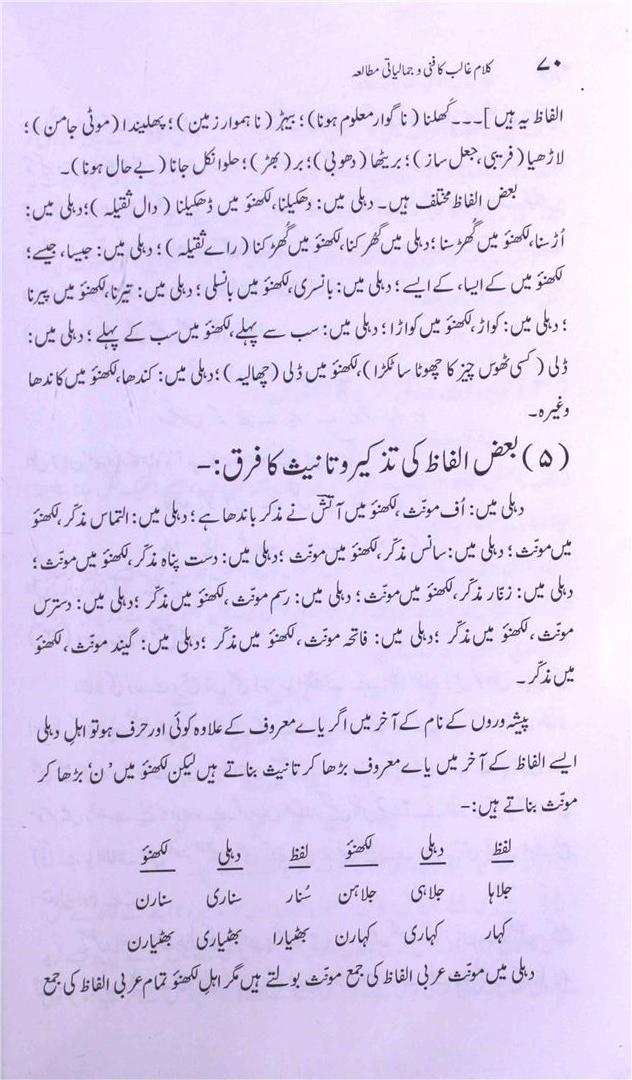 ۷۰ کلام غالب کا فنی و جمالیاتی مطالعہ
الفاظ یہ ہیں]۔۔۔کُھلنا (ناگوار معلوم ہونا)؛ بیہڑ (ناہموار زمین)؛ پھلیندا (موٹی جامن)؛
لاڑھیا (فریبی، جعل ساز)؛ بریٹھا (دھوبی)؛ بر (بھڑ)؛ حلوا نکل جانا (بے حال ہونا)۔
بعض الفاظ مختلف ہیں۔ دہلی میں: دھکیلنا، لکھنؤ میں ڈھکیلنا (دال ثقیلہ)؛ دہلی میں:
اُڑسنا، لکھنؤ میں گُھڑسنا؛ دہلی میں گھُرکنا، لکھنؤ میں گھُڑکنا (راے ثقیلہ)؛ دہلی میں: جیسا، جیسے؛
لکھنؤ میں کے ایسا، کے ایسے؛ دہلی میں: بانسری، لکھنؤ میں بانسلی؛ دہلی میں: تیرنا، لکھنؤ میں پیرنا
؛ دہلی میں: کواڑ، لکھنؤ میں کواڑا؛ دہلی میں: سب سے پہلے، لکھنؤ میں سب کے پہلے؛ دہلی میں:
ڈلی (کسی ٹھوس چیز کا چھوٹا سا ٹکڑا)، لکھنؤ میں ڈلی (چھالیہ)؛ دہلی میں: کندھا، لکھنؤ میں کاندھا
وغیرہ۔
(۵) بعض الفاظ کی تذکیر و تانیث کا فرق:-
دہلی میں: اُف مونّث، لکھنؤ میں آتش نے مذکر باندھا ہے؛ دہلی میں: التماس مذکّر، لکھنؤ
میں مونّث؛ دہلی میں: سانس مذکّر، لکھنؤ میں مونّث؛ دہلی میں: دست پناہ مذکّر، لکھنؤ میں مونّث؛
دہلی میں: زنّار مذکّر، لکھنؤ میں مونّث؛ دہلی میں: رسم مونّث، لکھنؤ میں مذکّر؛ دہلی میں: دسترس
مونّث، لکھنؤ میں مذکّر؛ دہلی میں: فاتحہ مونّث، لکھنؤ میں مذکّر؛ دہلی میں: گیند مونّث، لکھنؤ
میں مذکّر۔
پیشہ وروں کے نام کے آخر میں اگر یاے معروف کے علاوہ کوئی اور حرف ہو تو اہلِ دہلی
ایسے الفاظ کے آخر میں یاے معروف بڑھا کر تانیث بناتے ہیں لیکن لکھنؤ میں ’ن‘ بڑھا کر
مونّث بناتے ہیں:-
لفظ دہلی لکھنؤ لفظ دہلی لکھنؤ
جلاہا جلاہی جلاہن سُنار سناری سنارن
کہار کہاری کہارن بھٹیارا بھٹیاری بھٹیارن
دہلی میں مونّث عربی الفاظ کی جمع مونّث بولتے ہیں مگر اہلِ لکھنؤ تمام عربی الفاظ کی جمع